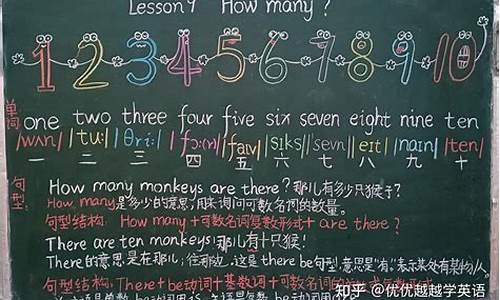 Lesson 9 How many?
1 2 3 4 5 6 7 8 9 10
单词 one two three four five six seven eight nine ten
/wʌn/ /tu:/ /θri:/ /fɔ:(r)/ /faɪv/ /sɪks/ /'sevn/ /eɪt/ /naɪn/ /ten/
一 二 三 四 五 六 七 八 九 十
句型: How many monkeys are there? 那儿有多少只猴子?
How many是多少的意思,用来询问可数名词的数量。
句型结构: How many+可数名词复数形式+are there?
There are ten monkeys! 那儿有十只猴!
There的意思是在那儿;往那边.这是there be句型,意思是"有"表示某处有某物/人
句型结构: There+be动词+基数词+可数名词的
知乎 @优优越越学英语